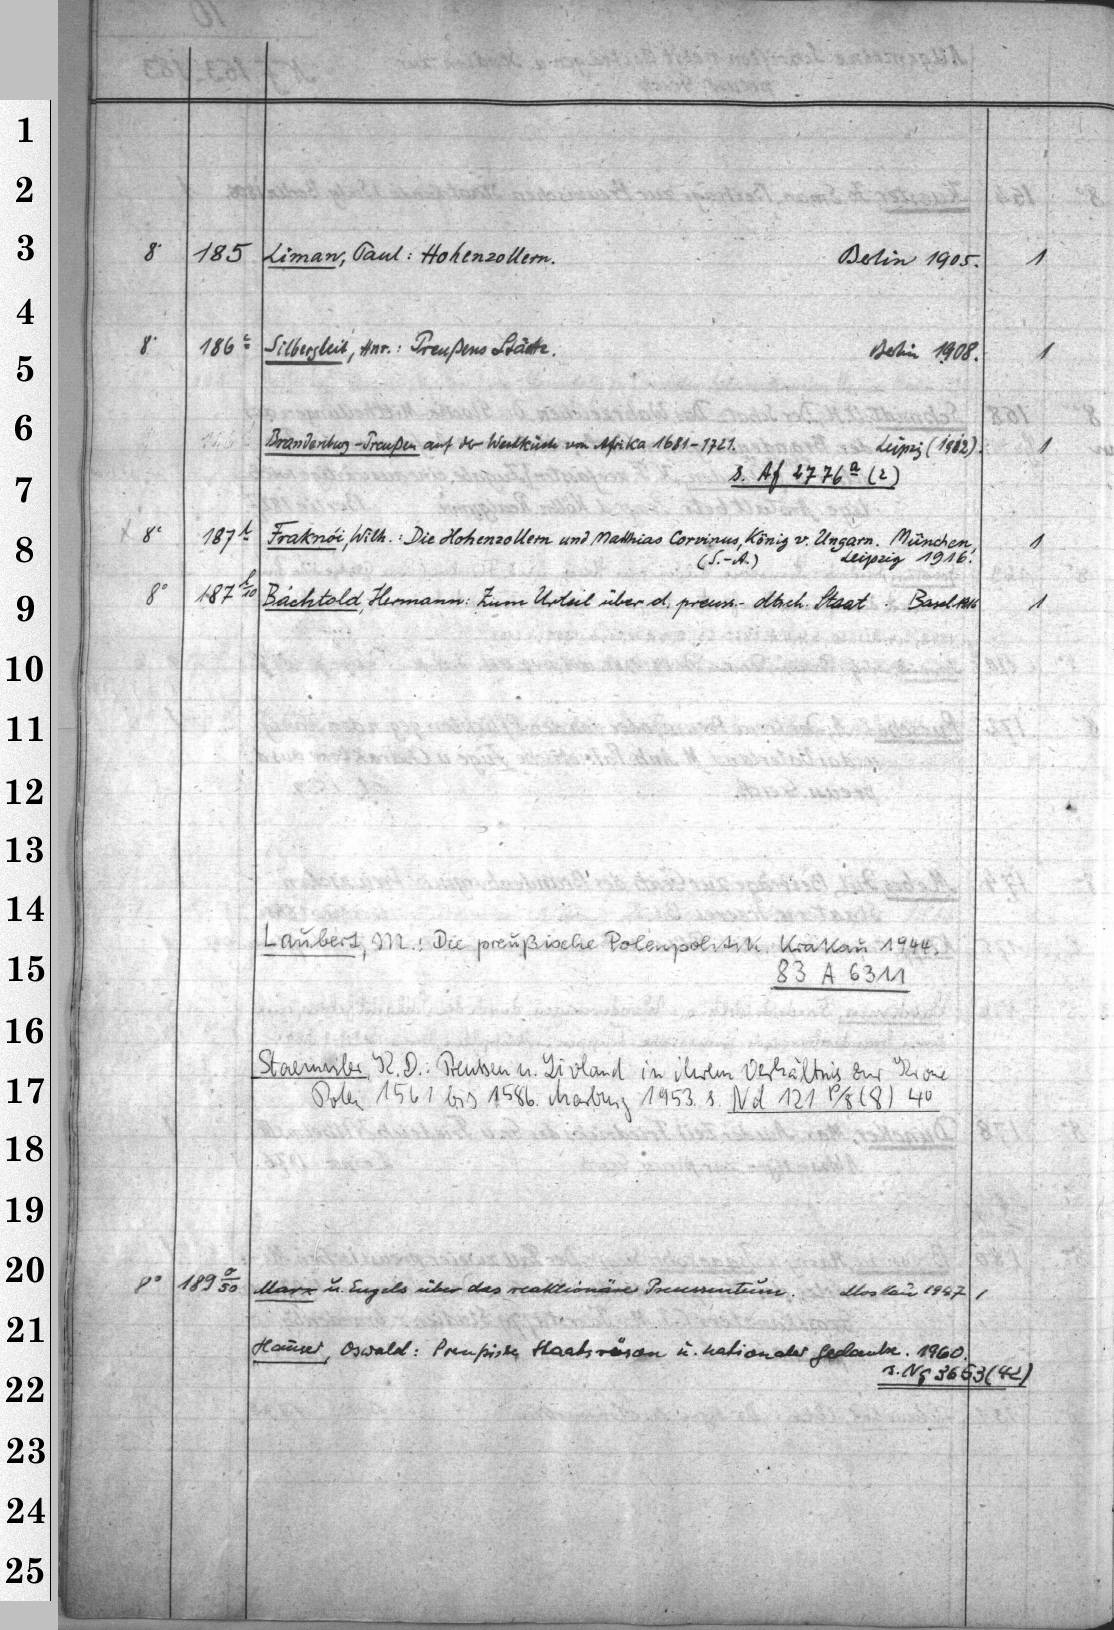 1
2
3
4
5
6
7
8
9
10
11
12
13
14
15
16
17
18
19
20
21
22
23
24
25
8° 185 Liman, Paul: Hohenzollern. Berlin 1905. 1
8° 186 Silbergleit, Hnr.: Preußens Städte. Berlin 1908. 1
Brandenburg-Preußen auf der Westküste von Afrika 1681-1721. Leipzig (1912). 1
s. Af 2776 a (2)
8° 187 Fraknói, Wilh.: Die Hohenzollern und Matthias Corvinus, König v. Ungarn. München, 1
(S.-A.) Leipzig 1916.
8° 187 Bächtold, Hermann: Zum Urteil über d. preuss.-dtsch. Staat. Basel 1916 1
Laubert, M.: Die preußische Polenpolitik. Krakau 1944.
83 A 6311
Staemmler, K.D.: Preussen u. Livland in ihrem Verhältnis zur Krone
Polen 1561 bis 1586. Marburg 1953. s. Nd 121 P/8 (8) 4°
8° 189 Marx u. Engels über das reaktionäre Preussentum. Moskau 1947 1
Hauser, Oswald: Preußische Staatsräson u. nationaler Gedanke. 1960.
s. Ng 3653 (42)